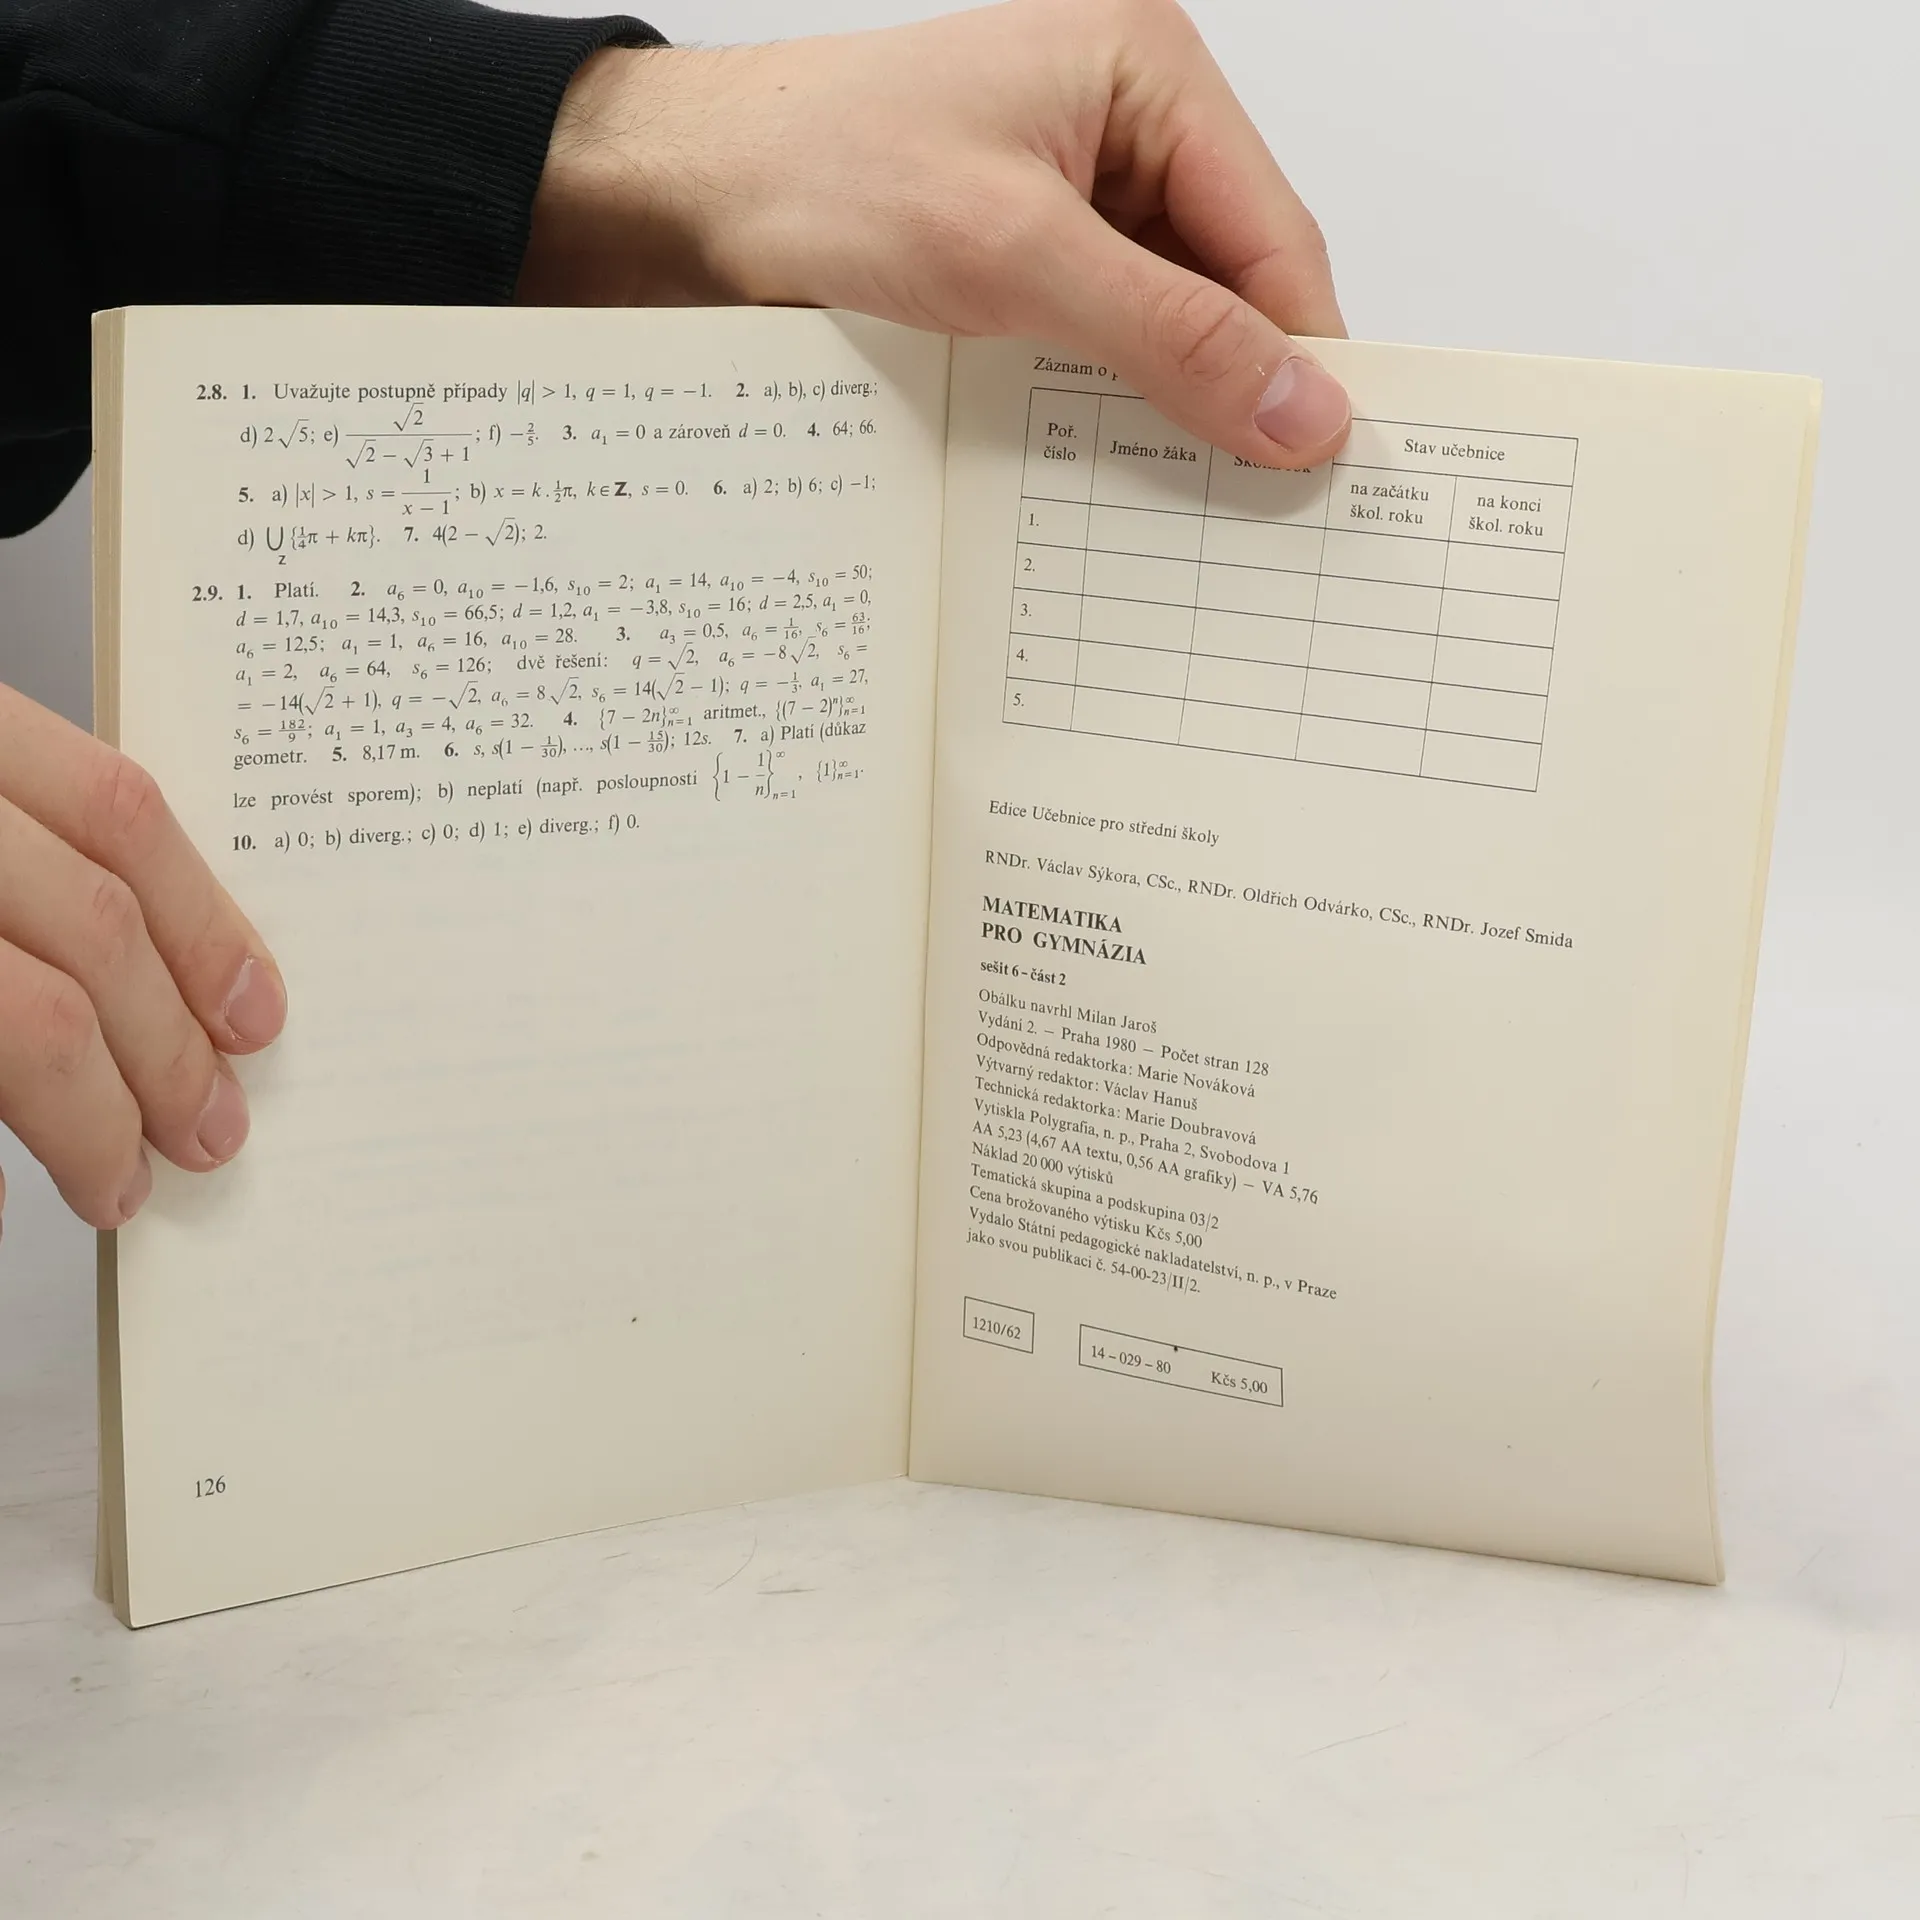 2.8. 1. Uvažujte postupně případy |q| > 1, q = 1, q = −1. 2. a), b), c) diverg.;
d) 2√5; e) √2/(√2 − √3 + 1); f) −2/5. 3. a₁ = 0 a zároveň d = 0. 4. 64; 66.
5. a) |x| > 1, s = 1/(x − 1); b) x = k . ½π, k ∈ Z, s = 0. 6. a) 2; b) 6; c) −1;
d) ⋃_Z {¼π + kπ}. 7. 4(2 − √2); 2.
2.9. 1. Platí. 2. a₆ = 0, a₁₀ = −1,6, s₁₀ = 2; a₁ = 14, a₁₀ = −4, s₁₀ = 50;
d = 1,7, a₁₀ = 14,3, s₁₀ = 66,5; d = 1,2, a₁ = −3,8, s₁₀ = 16; d = 2,5, a₁ = 0,
a₆ = 12,5; a₁ = 1, a₆ = 16, a₁₀ = 28. 3. a₃ = 0,5, a₆ = 1/16, s₆ = 63/16;
a₁ = 2, a₆ = 64, s₆ = 126; dvě řešení: q = √2, a₆ = −8√2, s₆ =
= −14(√2 + 1), q = −√2, a₆ = 8√2, s₆ = 14(√2 − 1); q = −1/3, a₁ = 27,
s₆ = 182/9; a₁ = 1, a₃ = 4, a₆ = 32. 4. {7 − 2n}∞n=1 aritmet., {(7 − 2)ⁿ}∞n=1
geometr. 5. 8,17 m. 6. s, s(1 − 1/30), ..., s(1 − 15/30); 12s. 7. a) Platí (důkaz
lze provést sporem); b) neplatí (např. posloupnosti {1 − 1/n}∞n=1, {1}∞n=1.
10. a) 0; b) diverg.; c) 0; d) 1; e) diverg.; f) 0.
126
Záznam o
Poř. číslo
Jméno žáka
Stav učebnice
na začátku škol. roku
na konci škol. roku
1.
2.
3.
4.
5.
Edice Učebnice pro střední školy
RNDr. Václav Sýkora, CSc., RNDr. Oldřich Odvárko, CSc., RNDr. Jozef Smida
MATEMATIKA
PRO GYMNÁZIA
sešit 6 – část 2
Obálku navrhl Milan Jaroš
Vydání 2. — Praha 1980 — Počet stran 128
Odpovědná redaktorka: Marie Nováková
Výtvarný redaktor: Václav Hanuš
Technická redaktorka: Marie Doubravová
Vytiskla Polygrafia, n. p., Praha 2, Svobodova 1
AA 5,23 (4,67 AA textu, 0,56 AA grafiky) — VA 5,76
Náklad 20 000 výtisků
Tematická skupina a podskupina 03/2
Cena brožovaného výtisku Kčs 5,00
Vydalo Státní pedagogické nakladatelství, n. p., v Praze
jako svou publikaci č. 54-00-23/II/2.
1210/62
14 – 029 – 80 Kčs 5,00